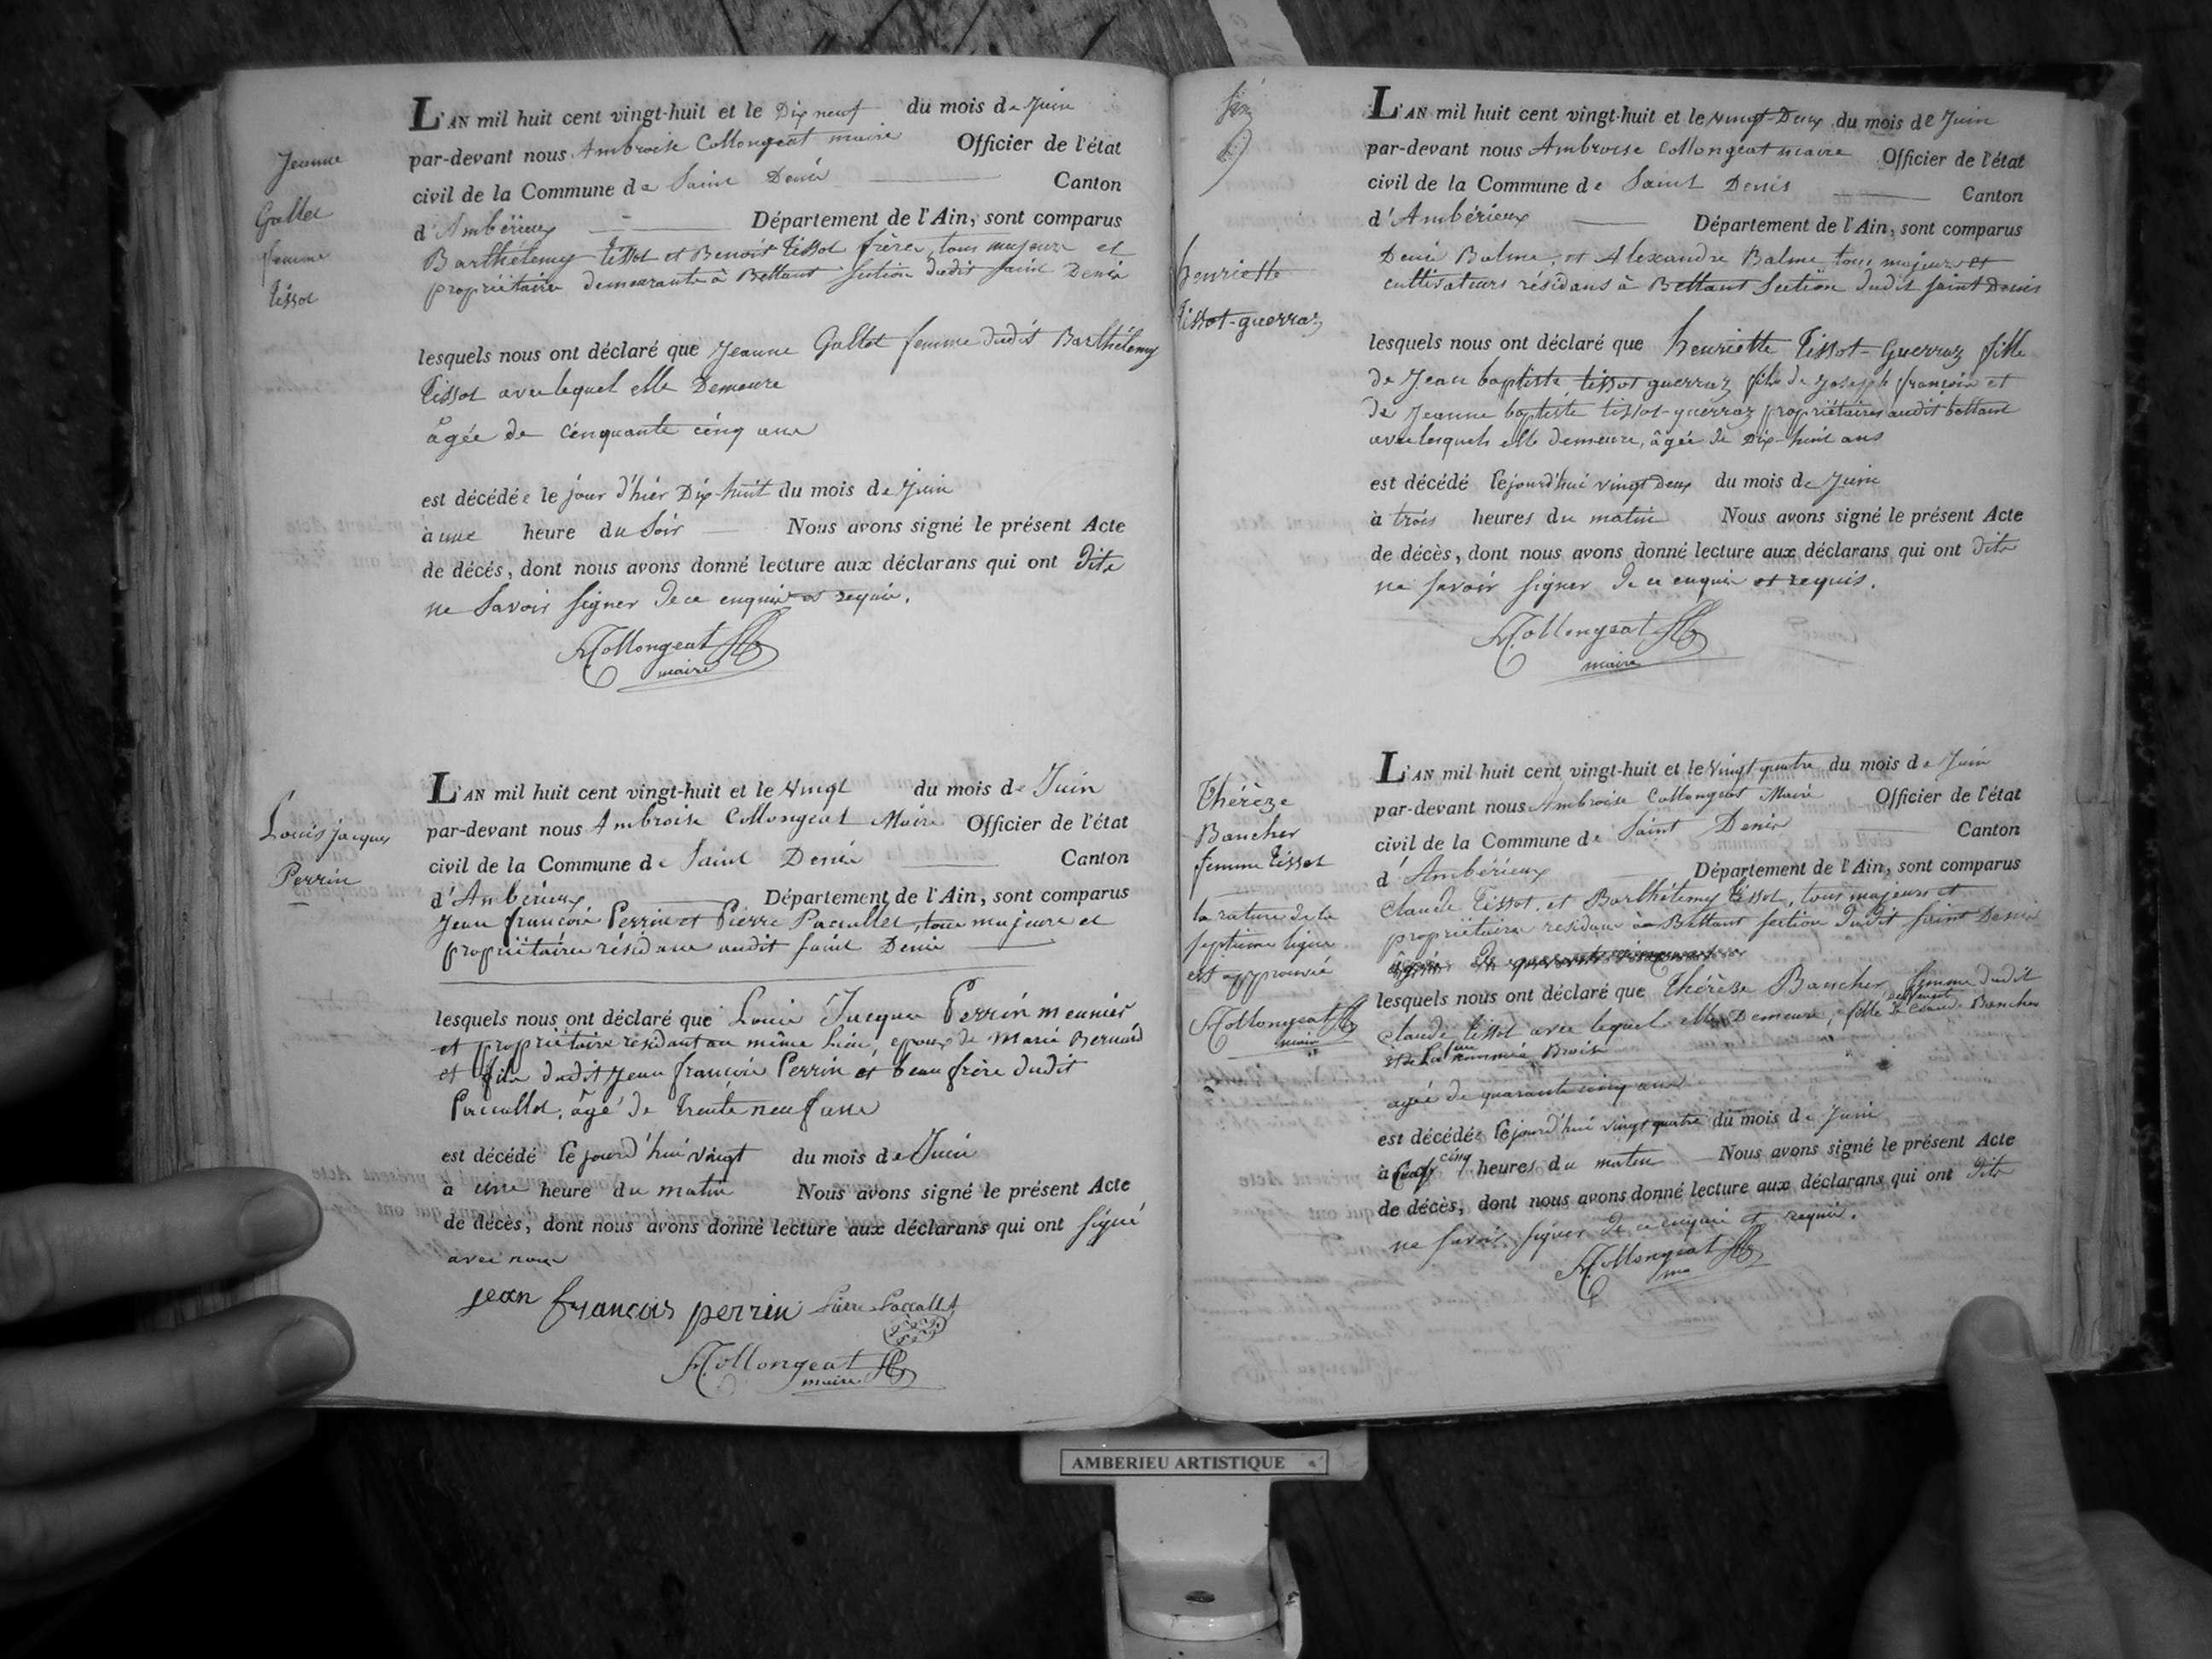 Jeanne
Gallet
femme
Tissot
L'AN mil huit cent vingt-huit et le Dix neuf du mois de Juin
par-devant nous Ambroise Collongeat maire Officier de l'état
civil de la Commune de Saint Denis Canton
d'Ambérieux Département de l'Ain, sont comparus
Barthélemy Tissot et Benoit Tissot frères, tous majeurs et
propriétaires demeurants à Bettant Section dudit Saint Denis
lesquels nous ont déclaré que Jeanne Gallet femme dudit Barthélemy
Tissot avec lequel elle Demeure
âgée de cinquante cinq ans
est décédée le jour d'hier Dix-huit du mois de Juin
à une heure du Soir Nous avons signé le présent Acte
de décés, dont nous avons donné lecture aux déclarans qui ont dits
ne Savoir signer de ce enquis et requis.
A Collongeat
maire
Louis jacques
Perrin
L'AN mil huit cent vingt-huit et le vingt du mois de Juin
par-devant nous Ambroise Collongeat Maire Officier de l'état
civil de la Commune de Saint Denis Canton
d'Ambérieux Département de l'Ain, sont comparus
Jean françois Perrin et Pierre Paccallet, tous majeurs et
propriétaires résidans audit Saint Denis
lesquels nous ont déclaré que Louis Jacques Perrin meunier
et propriétaire résidant au même lieu, epoux de Marie Bernard
et fils dudit Jean françois Perrin et beau frère dudit
Paccallet, âgé de trente neuf ans
est décédé le jourd'hui vingt du mois de Juin
à une heure du matin Nous avons signé le présent Acte
de décès, dont nous avons donné lecture aux déclarans qui ont signé
avec nous
jean françois perrin Pierre Paccallet
A Collongeat
maire
henriette
tissot-guerraz
L'AN mil huit cent vingt-huit et le vingt-Deux du mois de Juin
par-devant nous Ambroise Collongeat maire Officier de l'état
civil de la Commune de Saint Denis Canton
d'Ambérieux Département de l'Ain, sont comparus
Denis Balme, et Alexandre Balme tous majeurs et
cultivateurs résidans à Bettant Section dudit Saint Denis
lesquels nous ont déclaré que henriette Tissot-Guerraz fille
de Jean baptiste tissot guerraz fils de Joseph françois et
de Jeanne baptiste tissot-guerraz propriétaires audit bettant
avec lesquels elle demeure, âgée de Dix-huit ans
est décédé le jourd'hui vingt Deux du mois de Juin
à trois heures du matin Nous avons signé le présent Acte
de décès, dont nous avons donné lecture aux déclarans qui ont dits
ne savoir signer de ce enquis et requis.
A Collongeat
maire
Thérèze
Bancher
femme Tissot
la rature de la
septieme ligne
est approuvée
A Collongeat
maire
L'AN mil huit cent vingt-huit et le vingt quatre du mois de Juin
par-devant nous Ambroise Collongeat Maire Officier de l'état
civil de la Commune de Saint Denis Canton
d'Ambérieux Département de l'Ain, sont comparus
Claude Tissot, et Barthélemy Tissot, tous majeurs et
propriétaires residans à Bettant section dudit saint Denis
lesquels nous ont déclaré que Thérèze Bancher femme dudit
Claude Tissot avec lequel elle Demeure, fille de Bancher
et de nommée
agée de quarante cinq ans
est décédée le jourd'hui vingt quatre du mois de Juin
à cinq heures du matin Nous avons signé le présent Acte
de décès, dont nous avons donné lecture aux déclarans qui ont dits
ne savoir signer de ce enquis et requis.
A Collongeat
AMBERIEU ARTISTIQUE